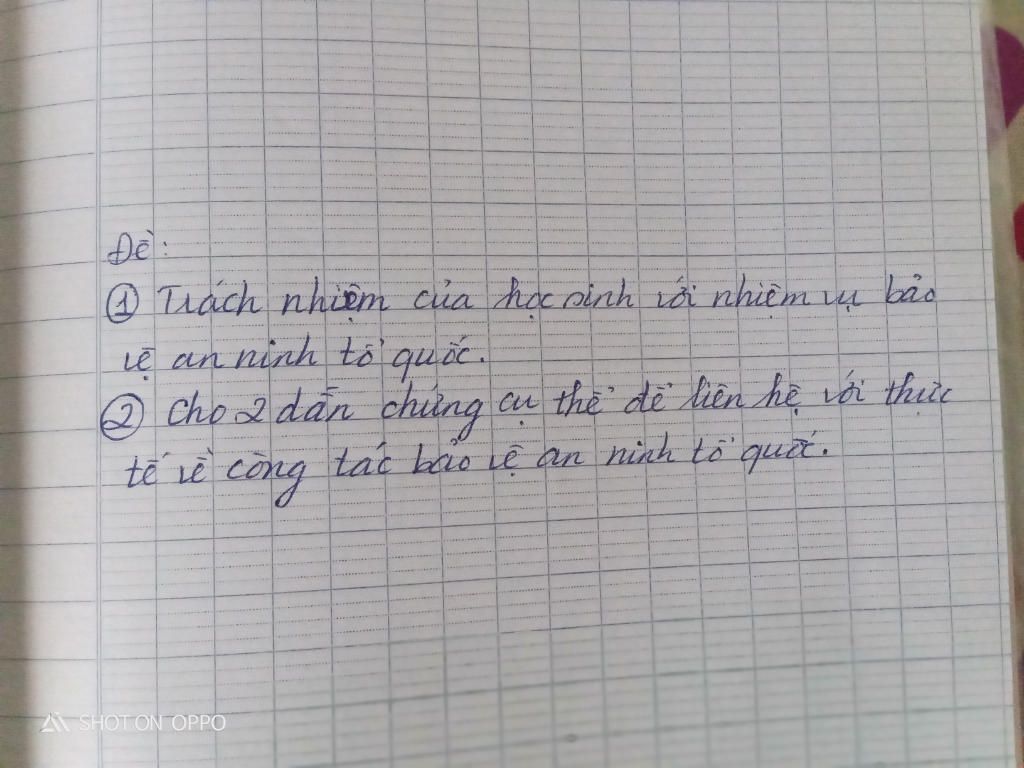 Đề:
① Trách nhiệm của học sinh với nhiệm vụ bảo
vệ an ninh tổ quốc.
② Cho 2 dẫn chứng cụ thể để liên hệ với thực
tế về công tác bảo vệ an ninh tổ quốc.
SHOT ON OPPO